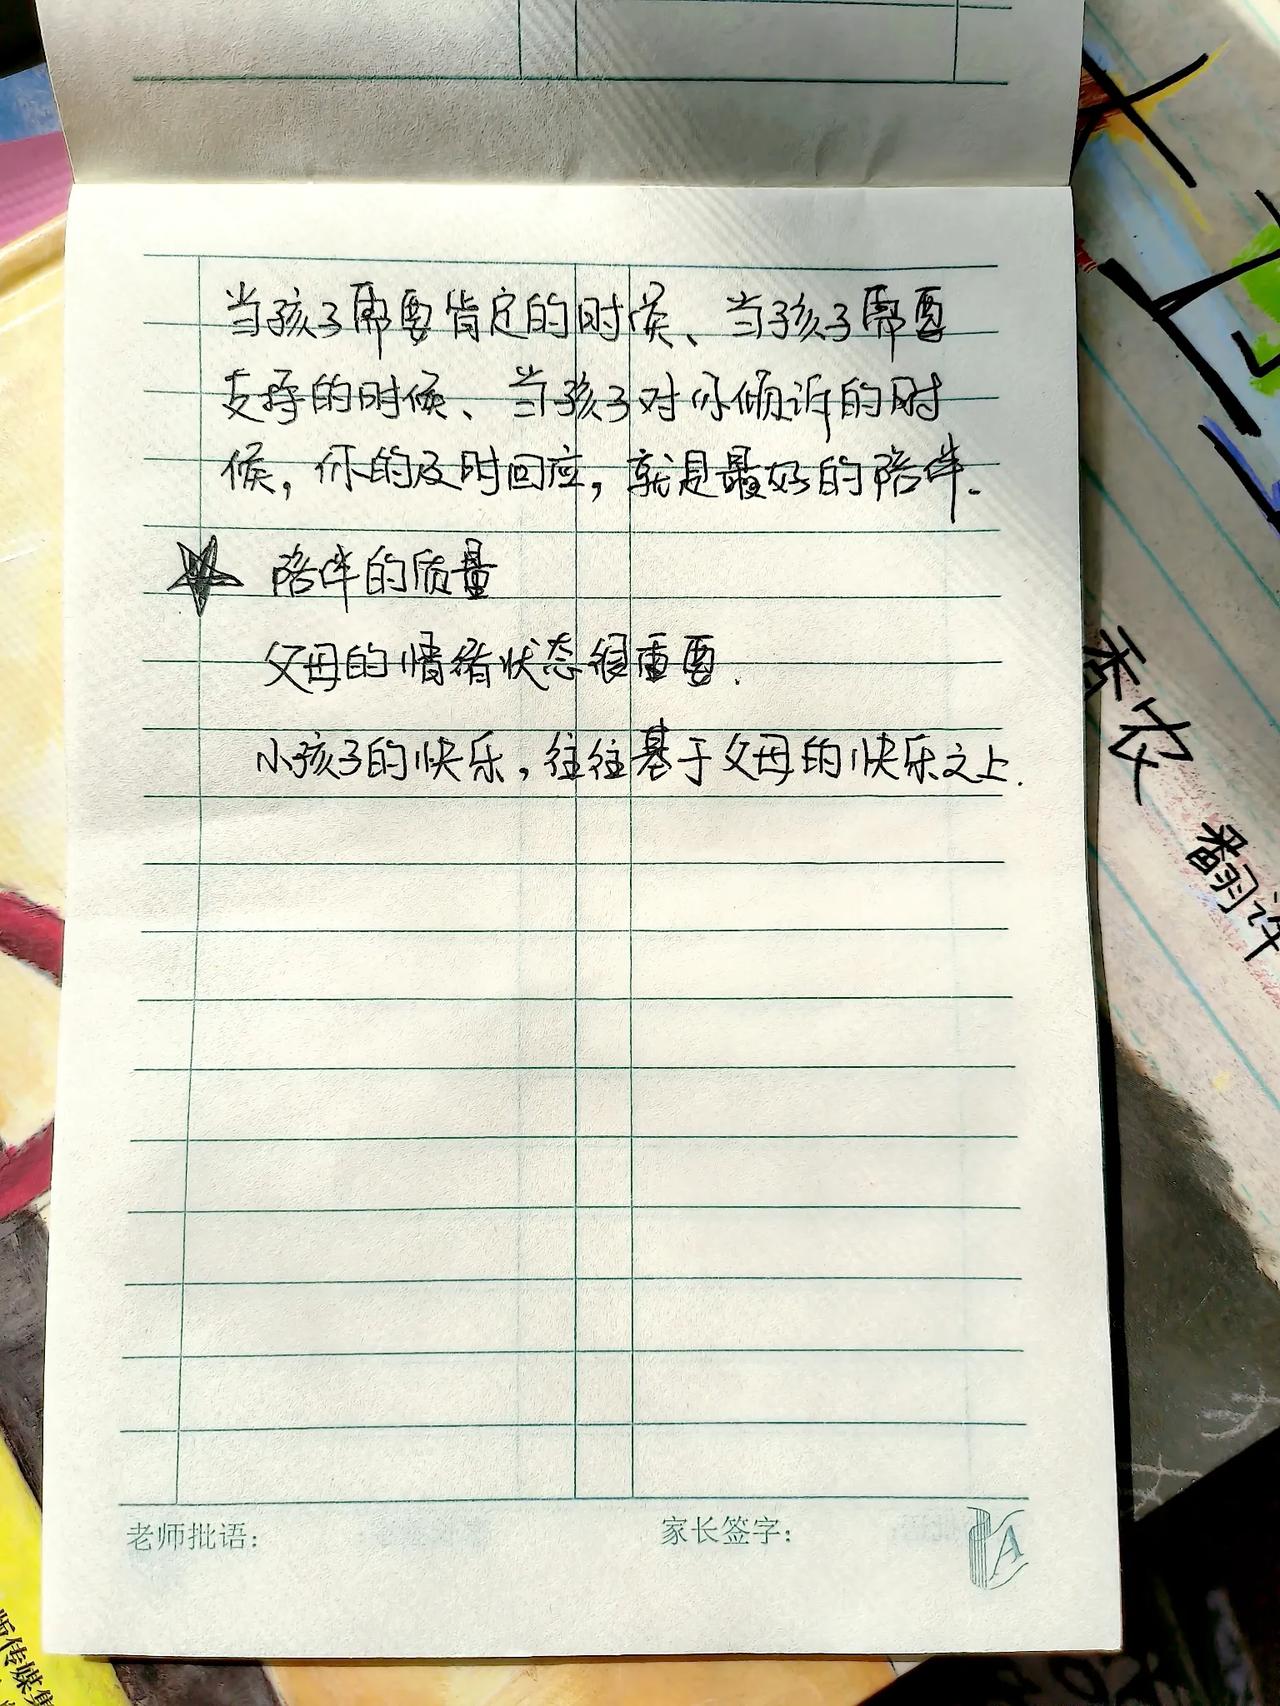 当孩子需要肯定的时候、当孩子需要
支持的时候、当孩子对你倾诉的时
候，你的及时回应，就是最好的陪伴.
陪伴的质量
父母的情绪状态很重要.
小孩子的快乐，往往基于父母的快乐之上.
老师批语：
家长签字：
A
香农
翻许
版传媒集